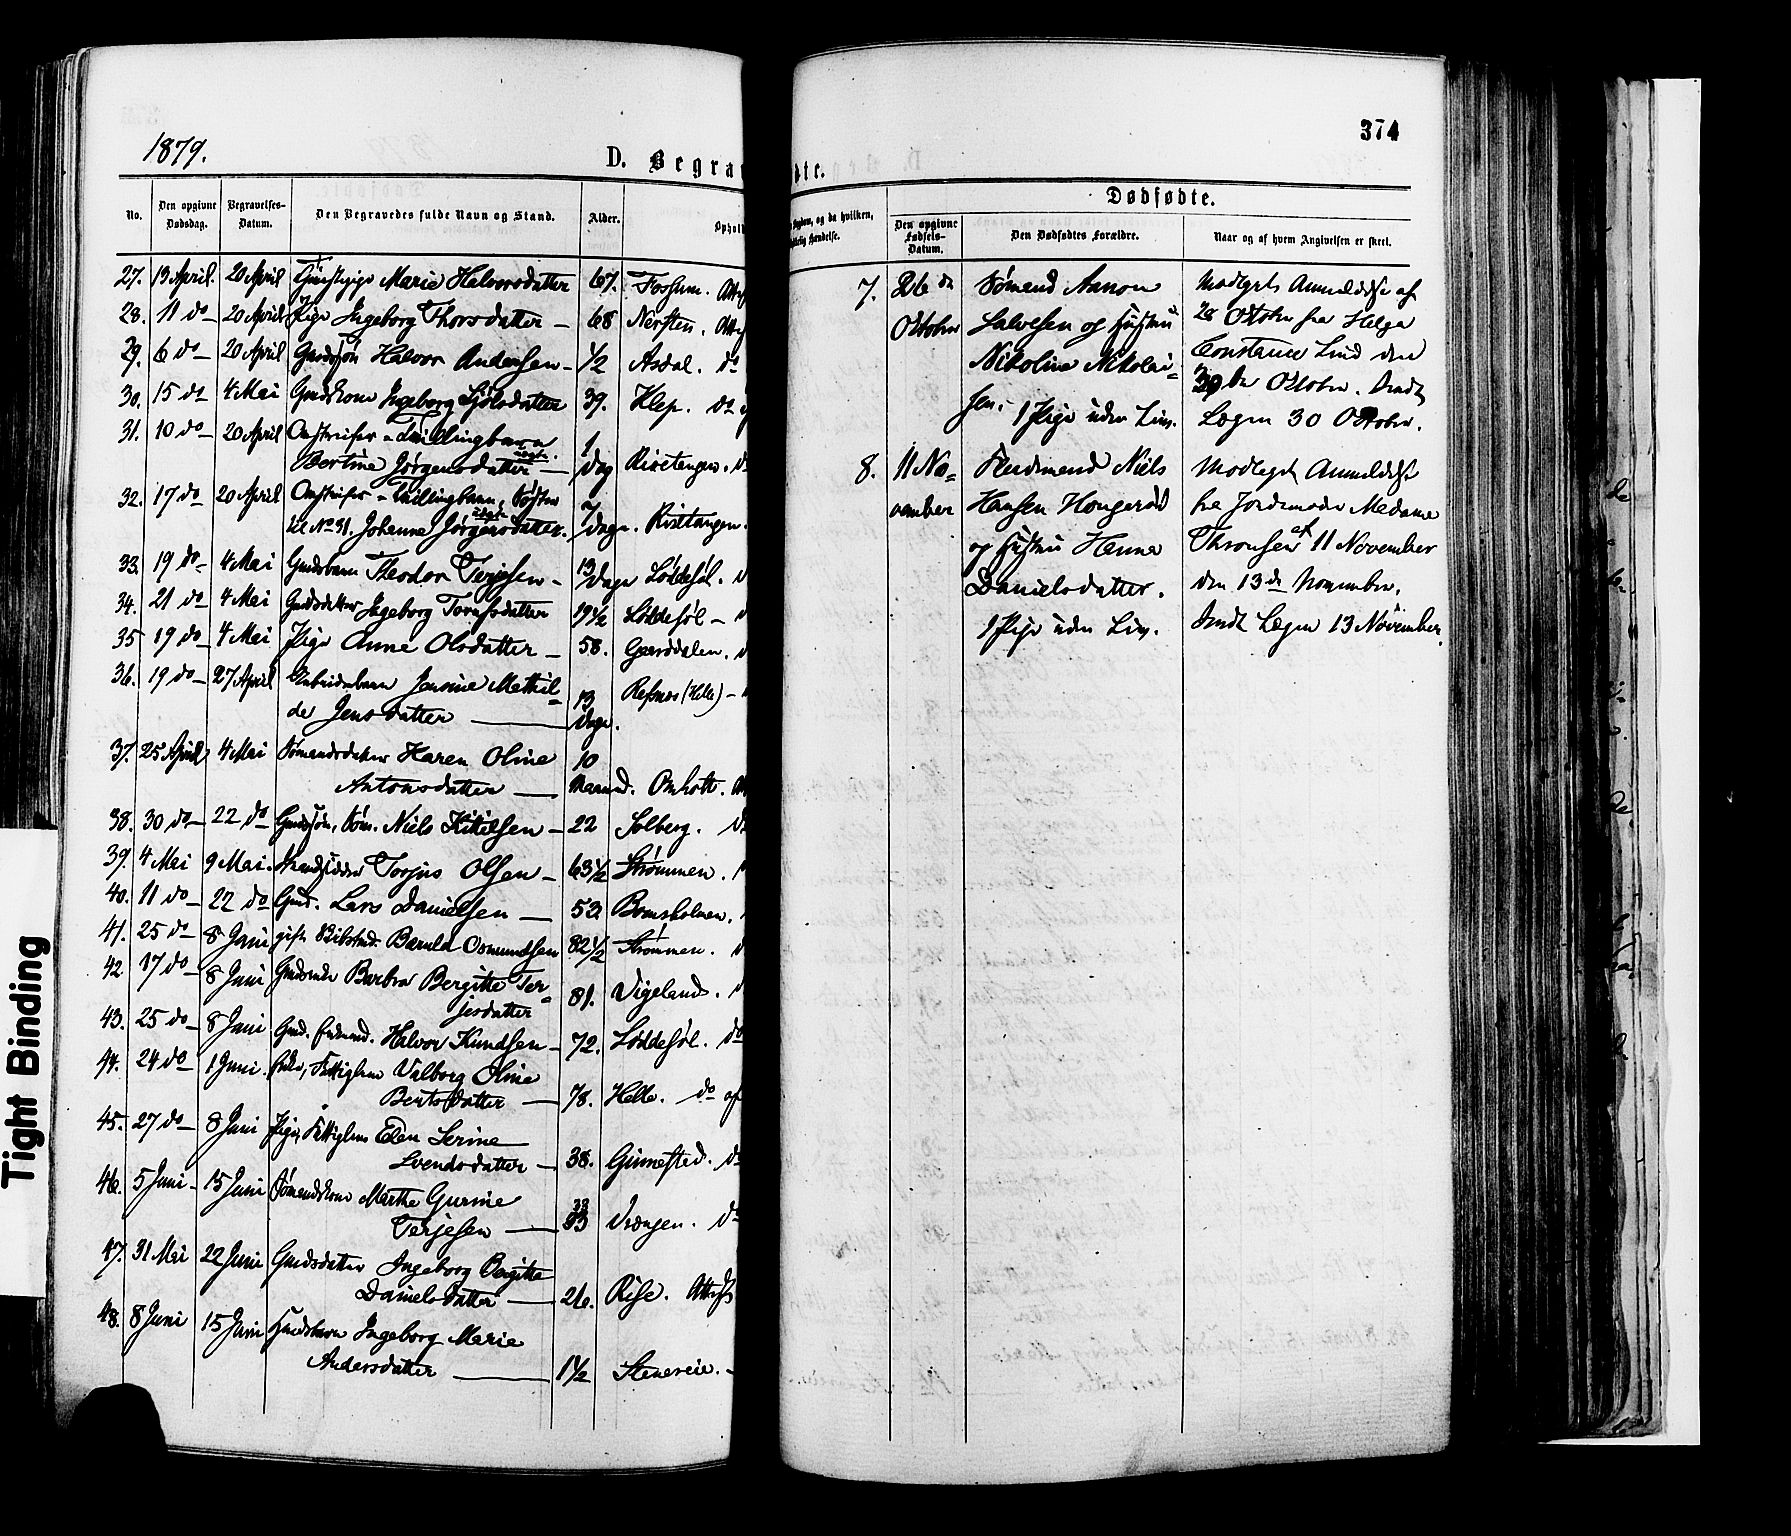 374
1879.
D. Begra
dte.
No.
Den opgivne Dødsdag.
Begravelses-Datum.
Den Begravedes fulde Navn og Stand.
Alder.
Ophold
Sygdom, og da hvilken,
Hændelse.
Dødfødte.
Den opgivne Fødsels-Datum.
Den Dødfødtes Forældre.
Naar og af hvem Angivelsen er skeet.
27. 13 April. 20 April Marie Halvorsdatter 67. Fossum.
28. 11 do 20 April Pige Ingeborg Thorsdatter — 68 Nersten.
29. 6 do 20 April Gaardsøn Halvor Andersen — 1/2 Asdal. do
30. 15 do 4 Mai Gmdskone Ingeborg Sjølsdatter 39. Klep. do
31. 10 do 20 April Tvillingbarn
Bertine Jørgensdatter — 1 Dag Risetangen.
32. 17 do 20 April Tvillingbarn, Søster
til No 31. Johanne Jørgensdatter. 7 Dage. Risttangen.
33. 19 do 4 Mai Gmdsbarn Theodor Terjesen — 13 Dage Løddesøl.
34. 21 do 4 Mai Gmdsdatter Ingeborg Torn/sdatter 19 1/2 Løddesøl —
35 19 do 4 Mai Pige Anne Olsdatter — 58. Gaasdalen.
36. 19 do 27 April Jensine Mathil=
de Jensdatter — 13 Dage. Refsnes (Helle) —
37. 25 April 4 Mai Sømandsdatter Karen Oline
Antonsdatter — 10 Maaned. Omholt.
38. 30 do 22 do Gmdssøn, Søm. Niels Kittilsen — 22 Solberg.
39. 4 Mai 9 Mai. Strandsidder Torjus Olsen — 63 1/2 Strømmen.
40. 11 do 22 do Gmd. Lars Danielsen — 53. Bomsholmen.
41. 25 do 8 Juni gift Selvstænd. Barald Osmundsen 82 1/2 Strømmen.
42 17 do 8 Juni Gmdsenke Barbra Bergitte Ter=
jesdatter 81. Vigeland.
43. 25 do 8 Juni Gmd. Enkemand. Halvor Knudsen — 72. Løddesøl. do
44. 24 do 1 Juni. Enke, Fattiglem Valborg Oline
Bentsdatter — 78. Helle. do af
45. 27 do 8 Juni Pige, Fattiglem Elen Serine
Svendsdatter — 38. Ginnested. do
46. 5 Juni 15 Juni Sømandskone Marthe Gurine
Terjesen — 33 Vrængen. do
47. 31 Mai 22 Juni Gmdsdatter Ingeborg Bergitte
Danielsdatter — 26. Rise. Attest
48. 8 Juni 15 Juni Husmdsbarn Ingeborg Marie
Andersdatter — 1 1/2 Stenereie. —
7. 26 de Sømand Aanon Modtget Anmeldelse af
Oktober Salvesen og Hustru 28 Oktober fra Helga
Nikoline Nikolai= Constance Lind den
sen. 30 de Oktober. Sendt
1 Pige uden Liv. Lægen 30 Oktober.
8. 11 No= Ferdinand Niels Modtaget Anmeldelse
vember Hansen Hougerød fra Jordemoder Madame
og Hustru Hanna Thronsen af 11 November
Danielsdatter. den 13 de November.
1 Pige uden Liv. Sendt Lægen 13 November.
Tight Binding